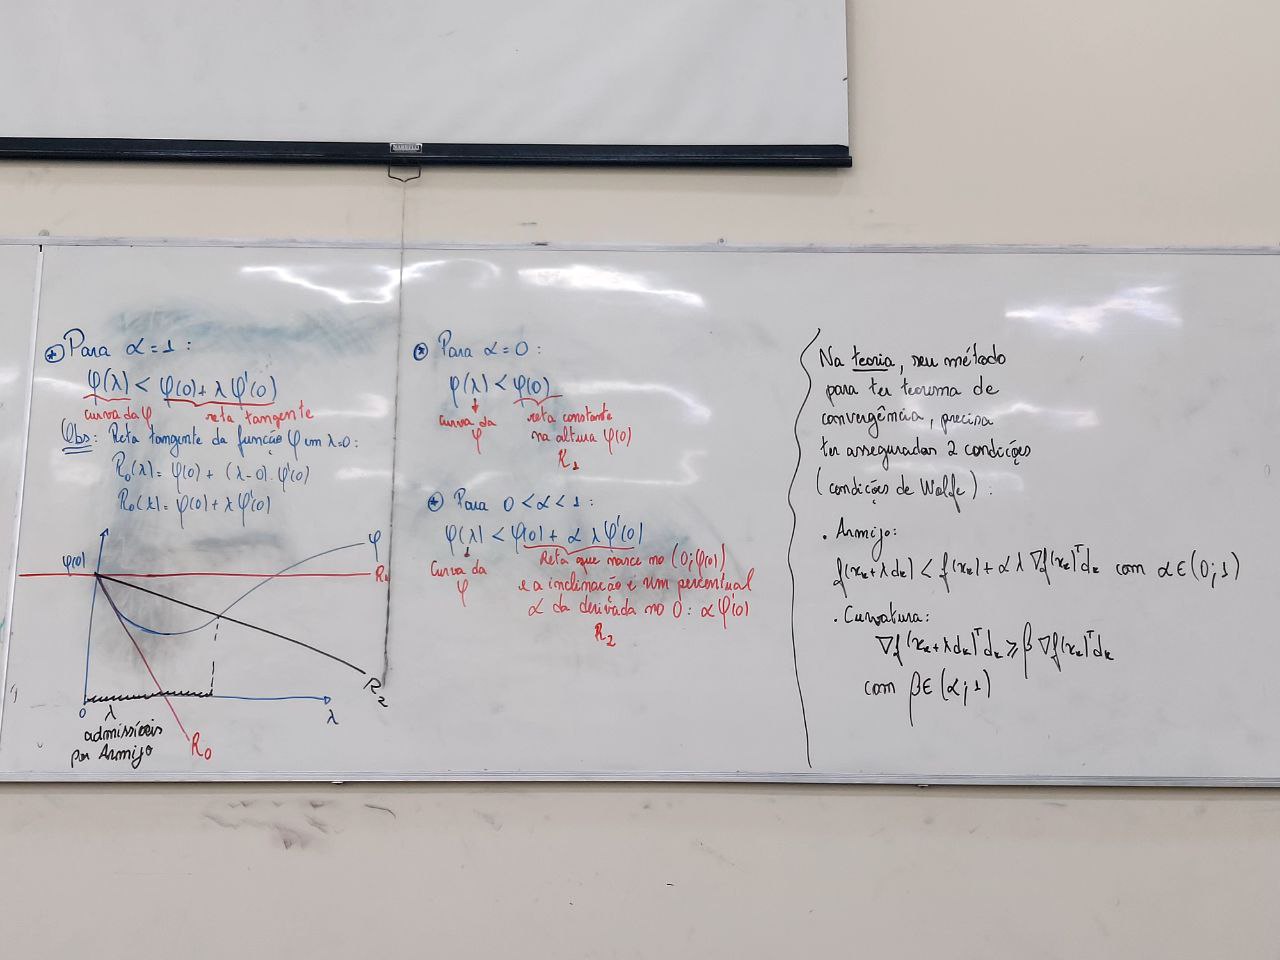 ⊛ Para α = 1 :
φ(λ) < φ(0) + λ φ'(0)
curva da φ reta tangente
Obs: Reta tangente da função φ em λ=0:
R₀(λ) = φ(0) + (λ-0). φ'(0)
R₀(λ) = φ(0) + λ φ'(0)
φ
φ(0)
R₁
R₂
0 λ
λ
admissíveis
por Armijo
R₀
⊛ Para α = 0 :
φ(λ) < φ(0)
curva da φ
reta constante
na altura φ(0)
R₁
⊛ Para 0 < α < 1 :
φ(λ) < φ(0) + α λ φ'(0)
Curva da φ
Reta que nasce no (0; φ(0))
e a inclinação é um percentual
α da derivada no 0: α φ'(0)
R₂
Na teoria, seu método
para ter teorema de
convergência, precisa
ter asseguradas 2 condições
(condições de Wolfe) :
. Armijo:
f(xₖ + λdₖ) < f(xₖ) + α λ ∇f(xₖ)ᵀdₖ com α ∈ (0; 1)
. Curvatura:
∇f(xₖ + λdₖ)ᵀdₖ ⩾ β ∇f(xₖ)ᵀdₖ
com β ∈ (α; 1)